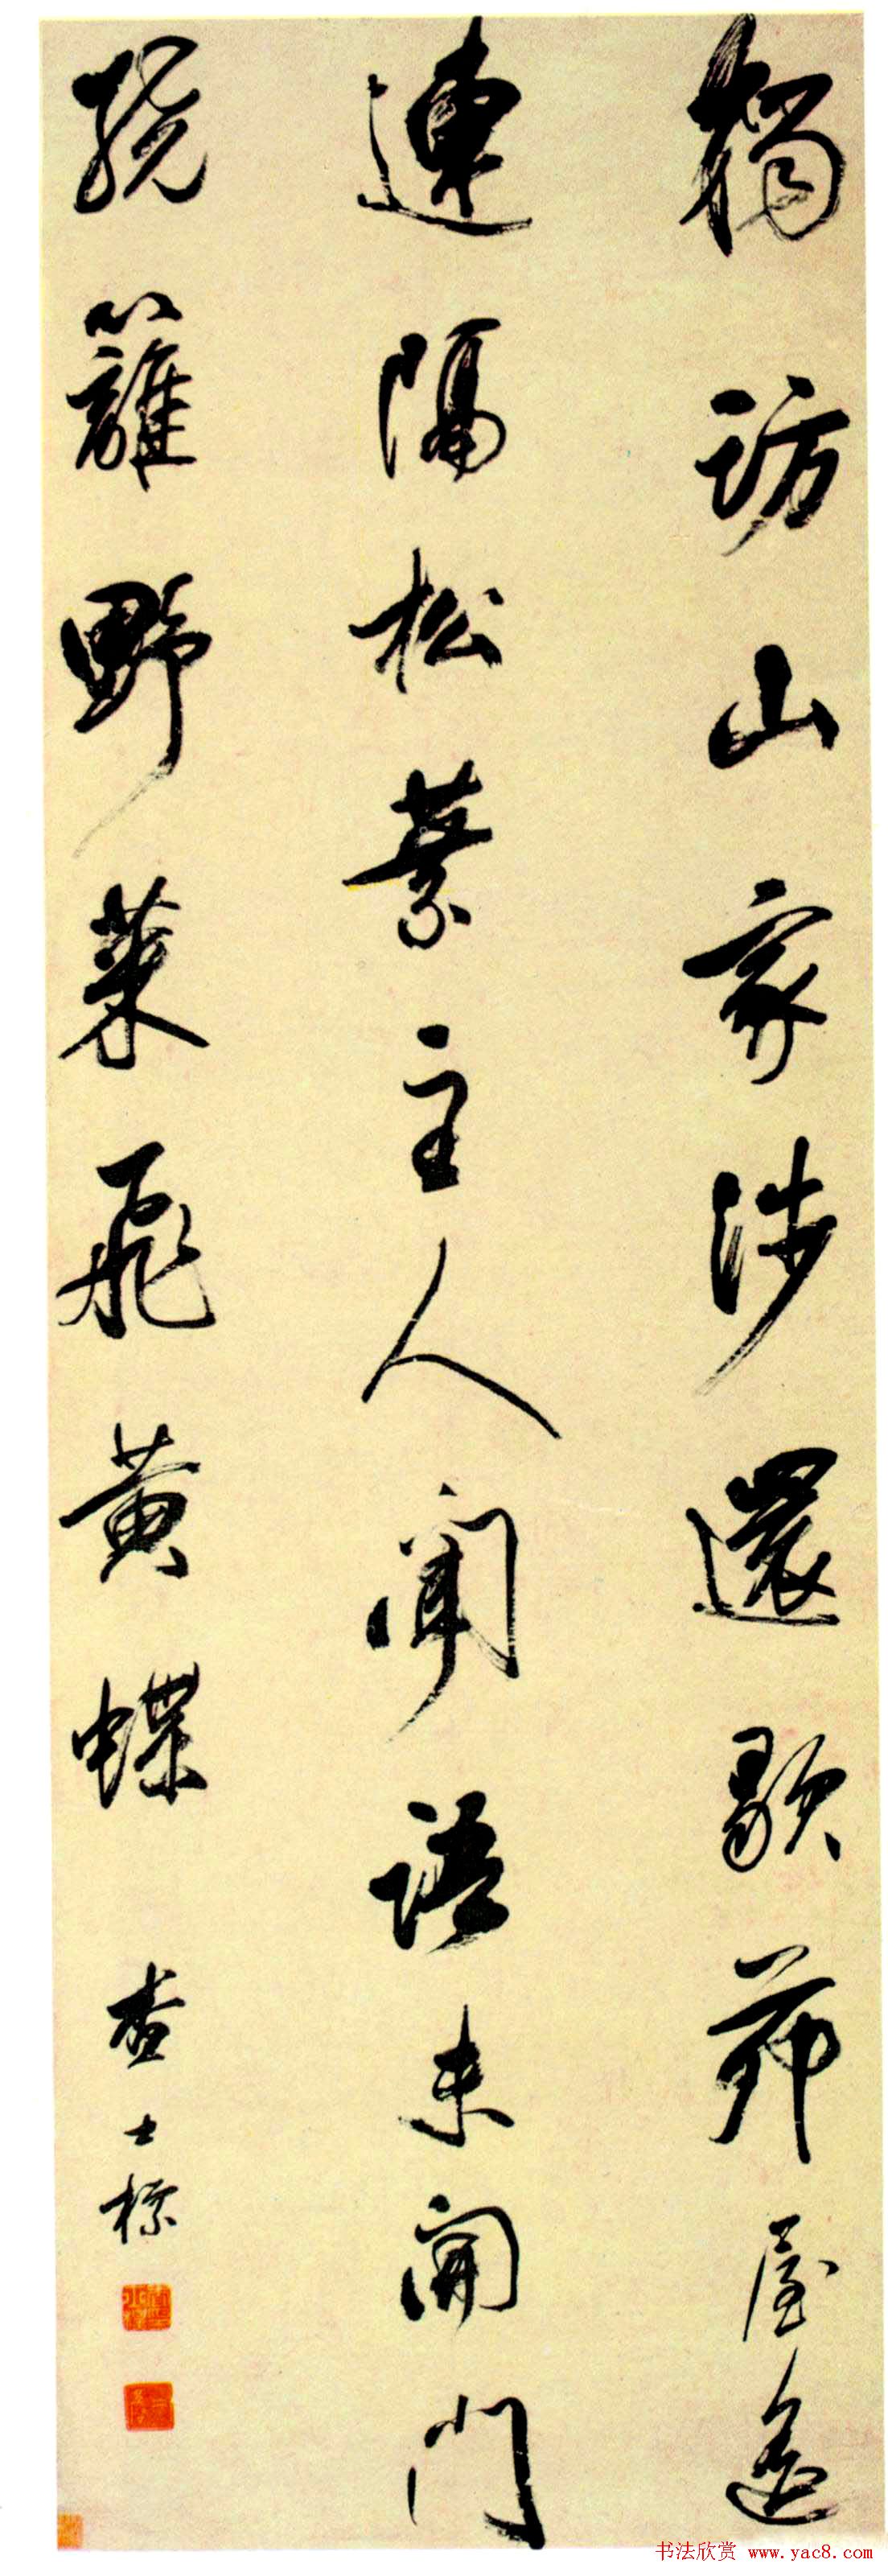 獨訪山家涉還歇茆屋遙
連隔松葉主人聞語未開門
繞籬野菜飛黃蝶 查士標
书法欣赏 www.yac8.com